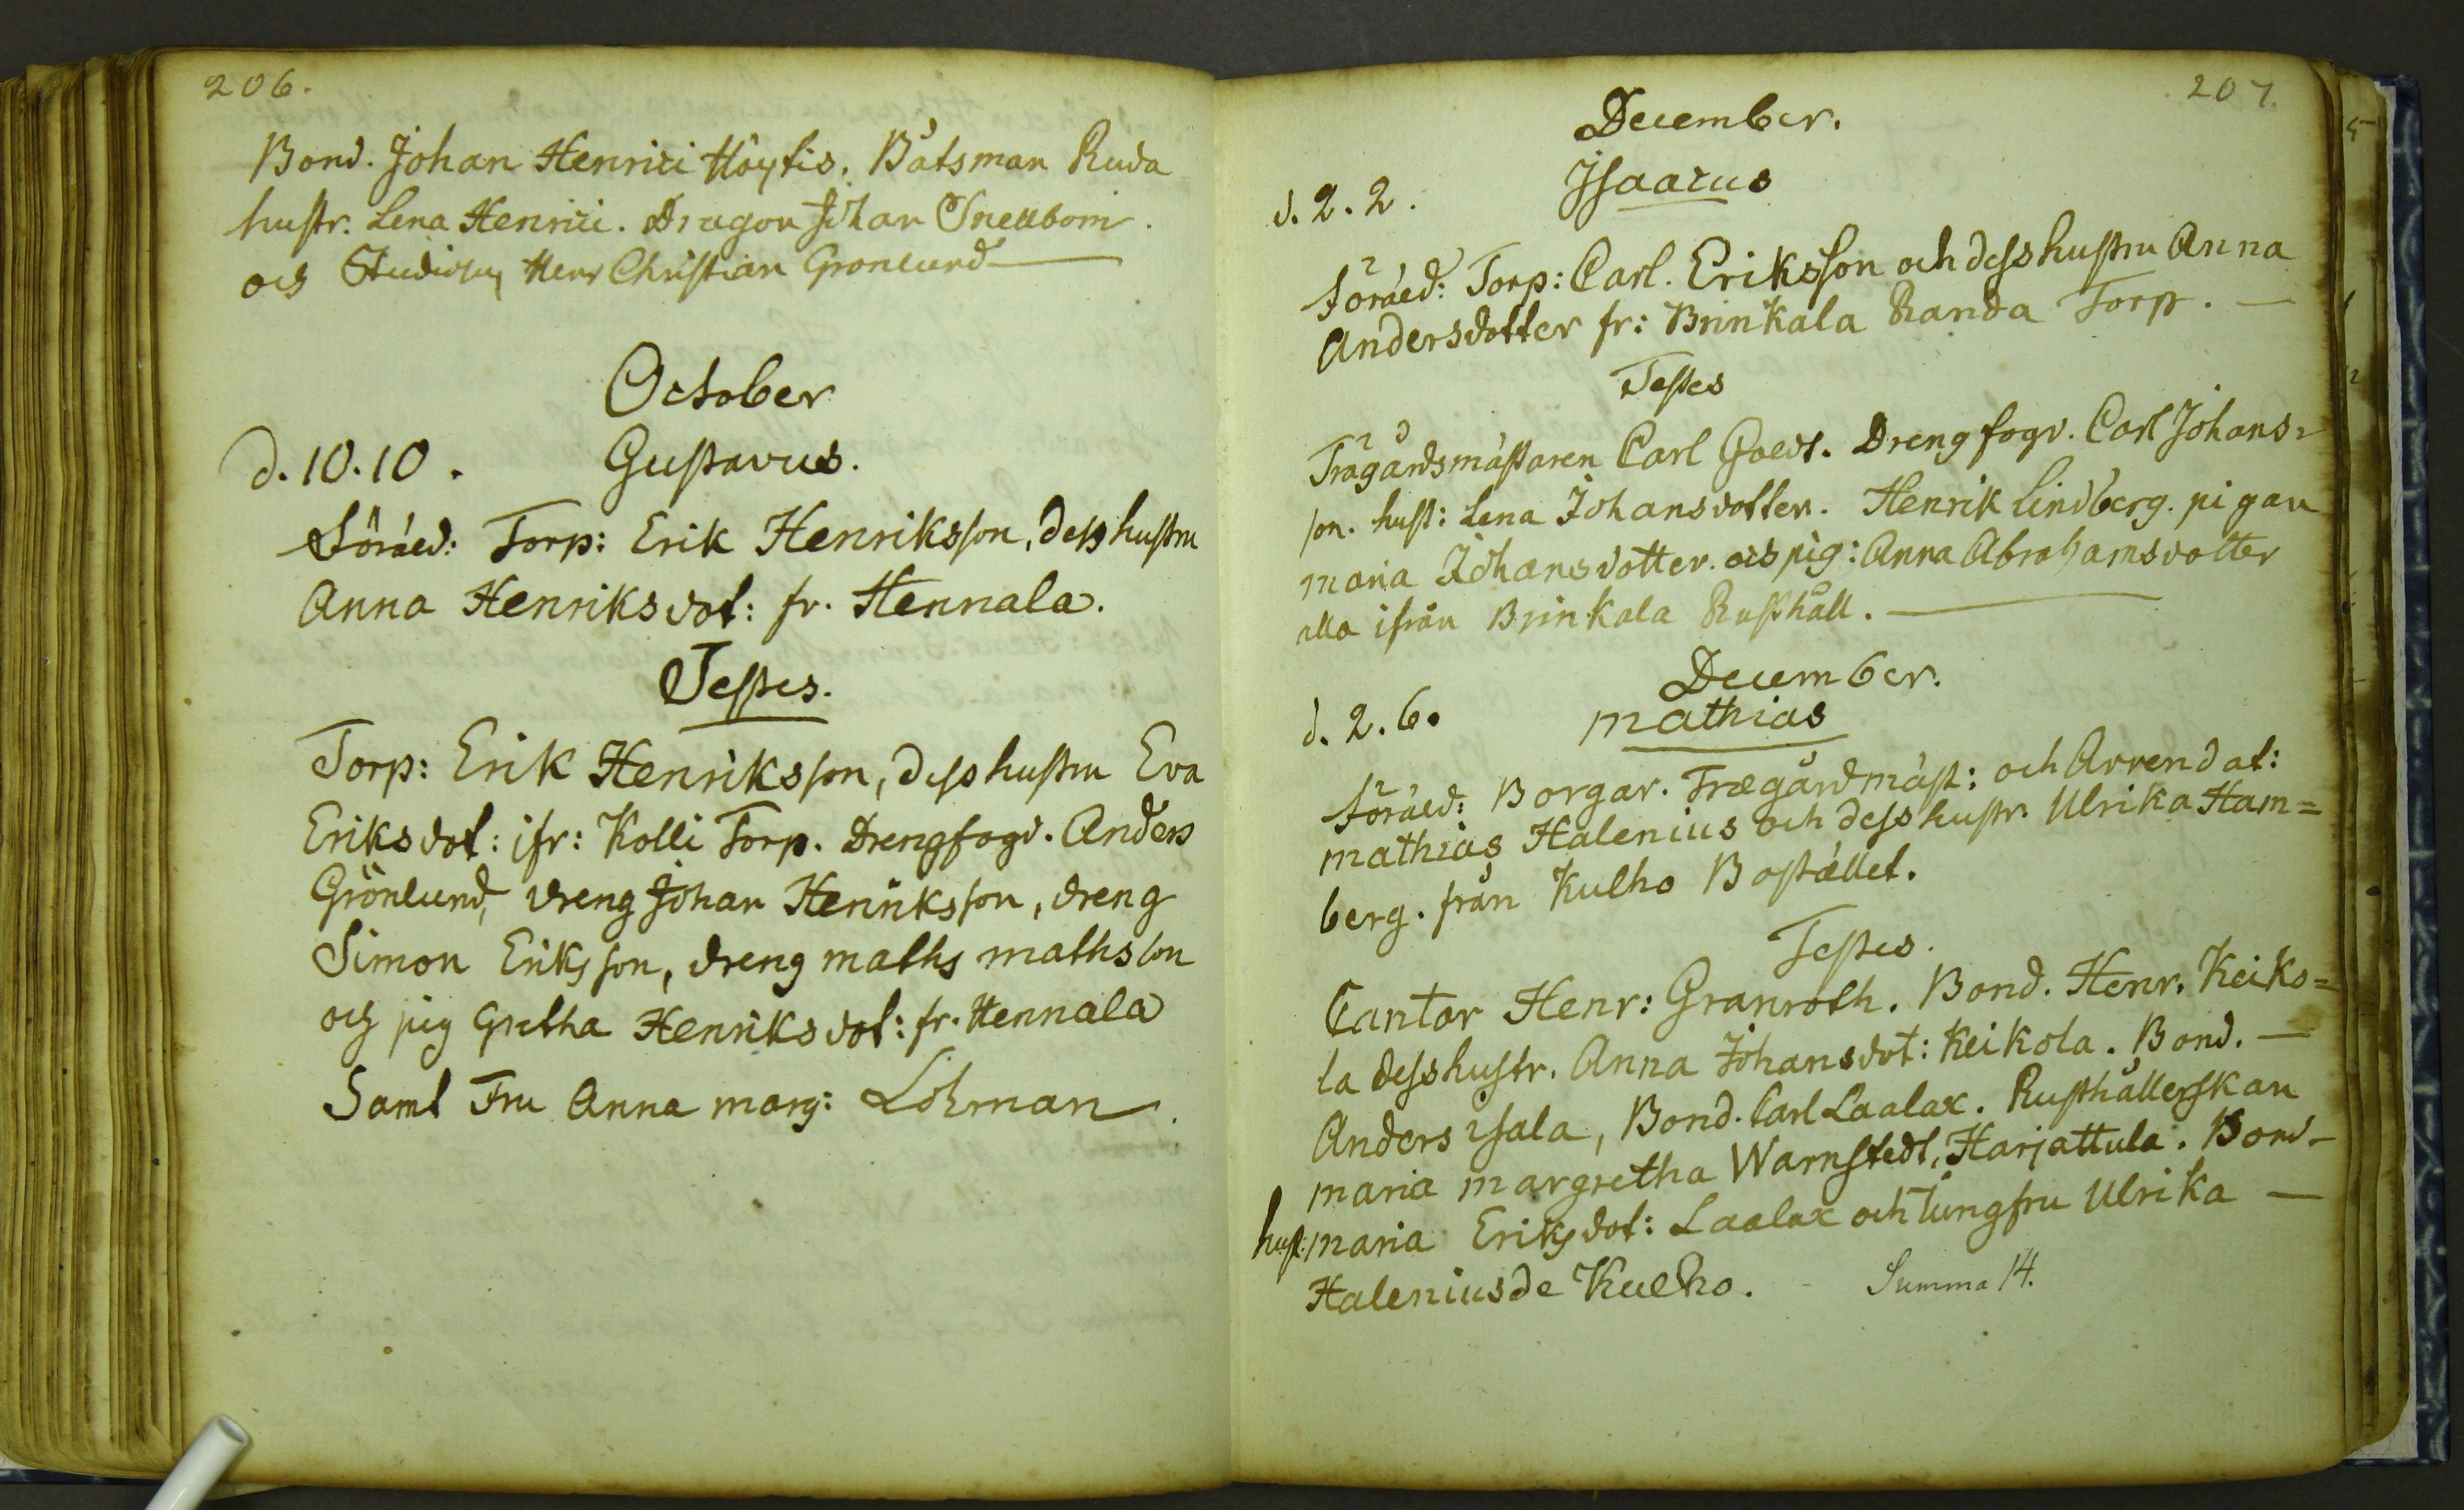 206.
Bond. Johan Henrici Höytis. Båtsman Ruda
hustr. Lena Henrici. Dragon Johan Snellbom.
och Studiosus Herr Christian Grönlund
October
d. 10. 10. Gustavus.
Föräld: Torp: Erik Henriksson, dess hustru
Anna Henriksdot: fr. Hennala.
Testes.
Torp: Erik Henriksson, dess hustru Eva
Eriksdot: ifr: Kolli Torp. Drengfogd. Anders
Grönlund, dreng Johan Henriksson, dreng
Simon Eriksson, dreng Maths Mathsson
och pig Gretha Henriksdot: fr. Hennala
Samt Fru Anna Marg: Lohman.
207.
December.
d. 2. 2. Isaacus
Föräld: Torp: Carl. Eriksson och dess hustru Anna
Andersdotter fr: Brinkala Randa Torp. —
Testes
Trägårdsmästaren Carl Goedt. Drengfogd. Carl Johans=
son. hust: Lena Johansdotter. Henrik Lindberg. pigan
Maria Johansdotter. och pig: Anna Abrahamsdotter
alla ifrån Brinkala Rusthåll. —
December.
d. 2. 6. Mathias
Föräld: Borgar. Trægårdmäst: och Arrendat:
Mathias Halenius och dess hustr. Ulrika Ham=
berg. från Kulho Bostället.
Testes.
Cantor Henr: Granroth. Bond. Henr. Keiko=
la dess hustr. Anna Johansdot: Keikola. Bond. —
Anders Isala, Bond. Carl Laalax. Rusthållerskan
Maria Margretha Warnstedt, Harjattula. Bond-
hust: Maria Eriksdot: Laalax och Jungfru Ulrika —
Halenius de Kulho. - Summa 14.